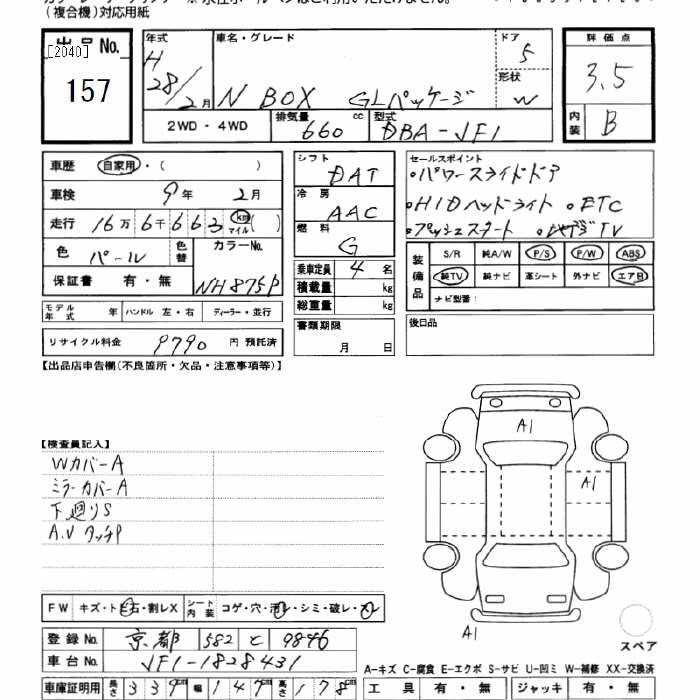 (複合機)対応用紙
出品No.
[2040]
157
年式 車名・グレード ドア
H 28/2月 N BOX GLパッケージ 5
形状
W
2WD・4WD 排気量 660 cc 型式 DBA-JF1
評価点
3.5
内装 B
車歴 自家用・( )
車検 9年 2月
走行 16万6千663 km マイル ( )
色 パール 色替 カラーNo.
NH875P
保証書 有・無
モデル年式 年 ハンドル 左・右 ディーラー・並行
リサイクル料金 9790 円 預託済
シフト DAT
冷房 AAC
燃料 G
乗車定員 4 名
積載量 kg
総重量 kg
書類期限
月 日
セールスポイント
・パワースライドドア
・HIDヘッドライト ・ETC
・プッシュスタート ・ナビTV
装備品 S/R 純A/W P/S P/W ABS
純TV 純ナビ 革シート 外ナビ エアB
ナビ型番:
後日品
【出品店申告欄(不良箇所・欠品・注意事項等)】
【検査員記入】
Wカバ-A
ミラーカバ-A
下廻りS
A.V タッチP
A1
A1
A1
スペア
FW キズ・トビ石・割レX シート内装 コゲ・穴・汚レ・シミ・破レ・スレ
登録No. 京都 582 と 9846
車台No. JF1-1828431
車庫証明用 長さ 339cm 幅 147cm 高さ 178cm
A-キズ C-腐食 E-エクボ S-サビ U-凹ミ W-補修 XX-交換済
工具 有・無 ジャッキ 有・無